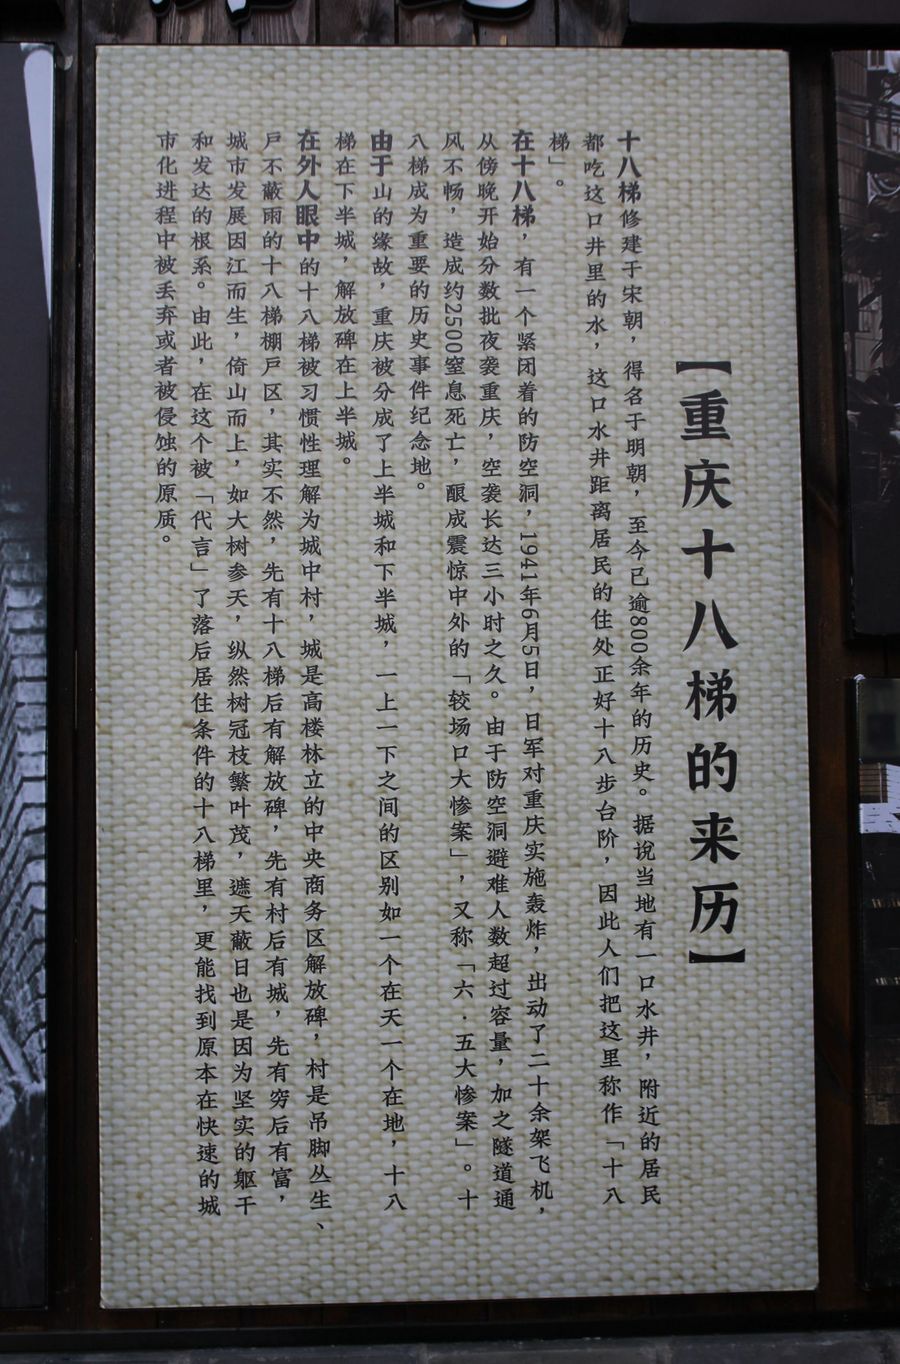 【重庆十八梯的来历】
十八梯修建于宋朝，得名于明朝，至今已逾800余年的历史。据说当地有一口水井，附近的居民
都吃这口井里的水，这口水井距离居民的住处正好十八步台阶，因此人们把这里称作「十八
梯」。
在十八梯，有一个紧闭着的防空洞，1941年6月5日，日军对重庆实施轰炸，出动了二十余架飞机，
从傍晚开始分数批夜袭重庆，空袭长达三小时之久。由于防空洞避难人数超过容量，加之隧道通
风不畅，造成约2500窒息死亡，酿成震惊中外的「较场口大惨案」，又称「六·五大惨案」。十
八梯成为重要的历史事件纪念地。
由于山的缘故，重庆被分成了上半城和下半城，一上一下之间的区别如一个在天一个在地，十八
梯在下半城，解放碑在上半城。
在外人眼中的十八梯被习惯性理解为城中村，城是高楼林立的中央商务区解放碑，村是吊脚丛生、
户不蔽雨的十八梯棚户区，其实不然，先有十八梯后有解放碑，先有村后有城，先有穷后有富，
城市发展因江而生，倚山而上，如大树参天，纵然树冠枝繁叶茂，遮天蔽日也是因为坚实的躯干
和发达的根系。由此，在这个被「代言」了落后居住条件的十八梯里，更能找到原本在快速的城
市化进程中被丢弃或者被侵蚀的原质。